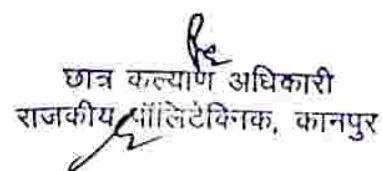 छात्र कल्याण अधिकारी
राजकीय पॉलिटेक्निक, कानपुर